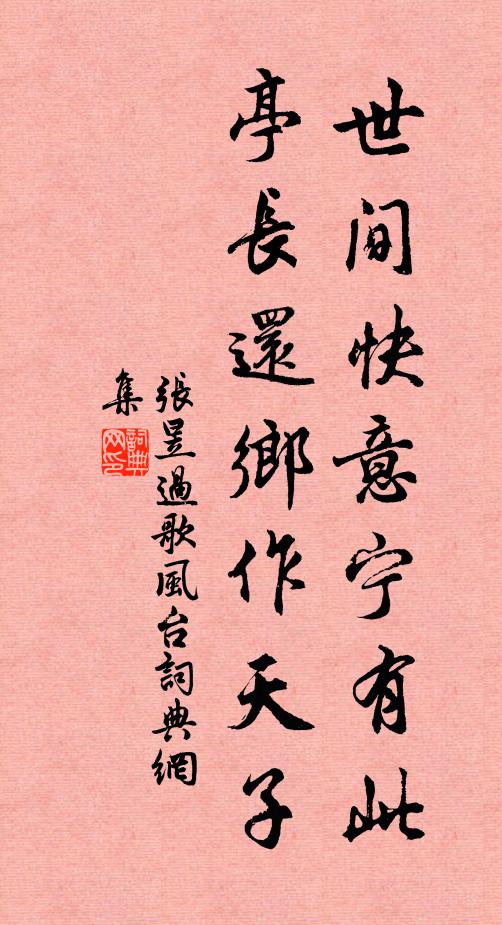 世间快意宁有此
亭長還鄉作天子
張昱過歌風台詞典網
集
詞典
网印